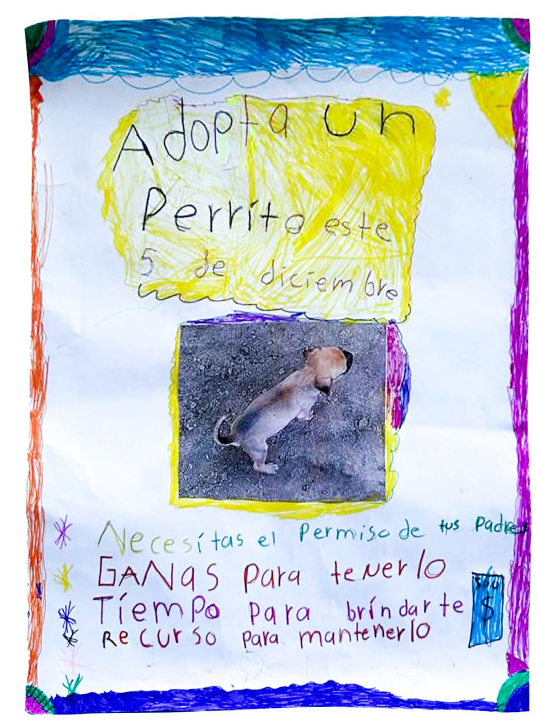 Adopta un
Perrito este
5 de diciembre
Necesitas el Permiso de tus Padres
GANas para tenerlo
Tiempo para brindarte
$
recurso para mantenerlo